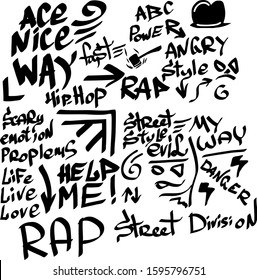 ACE
NiCE
WAY
fast
ABC
POWER
ANGRY
Style
HipHop
RAP
SCARY
emotion
Proplems
Life
Live
Love
HELP
ME!
Street
Style
evil
MY
WAY
DANGER
RAP
Street Division
shutterstock.com · 1595796751